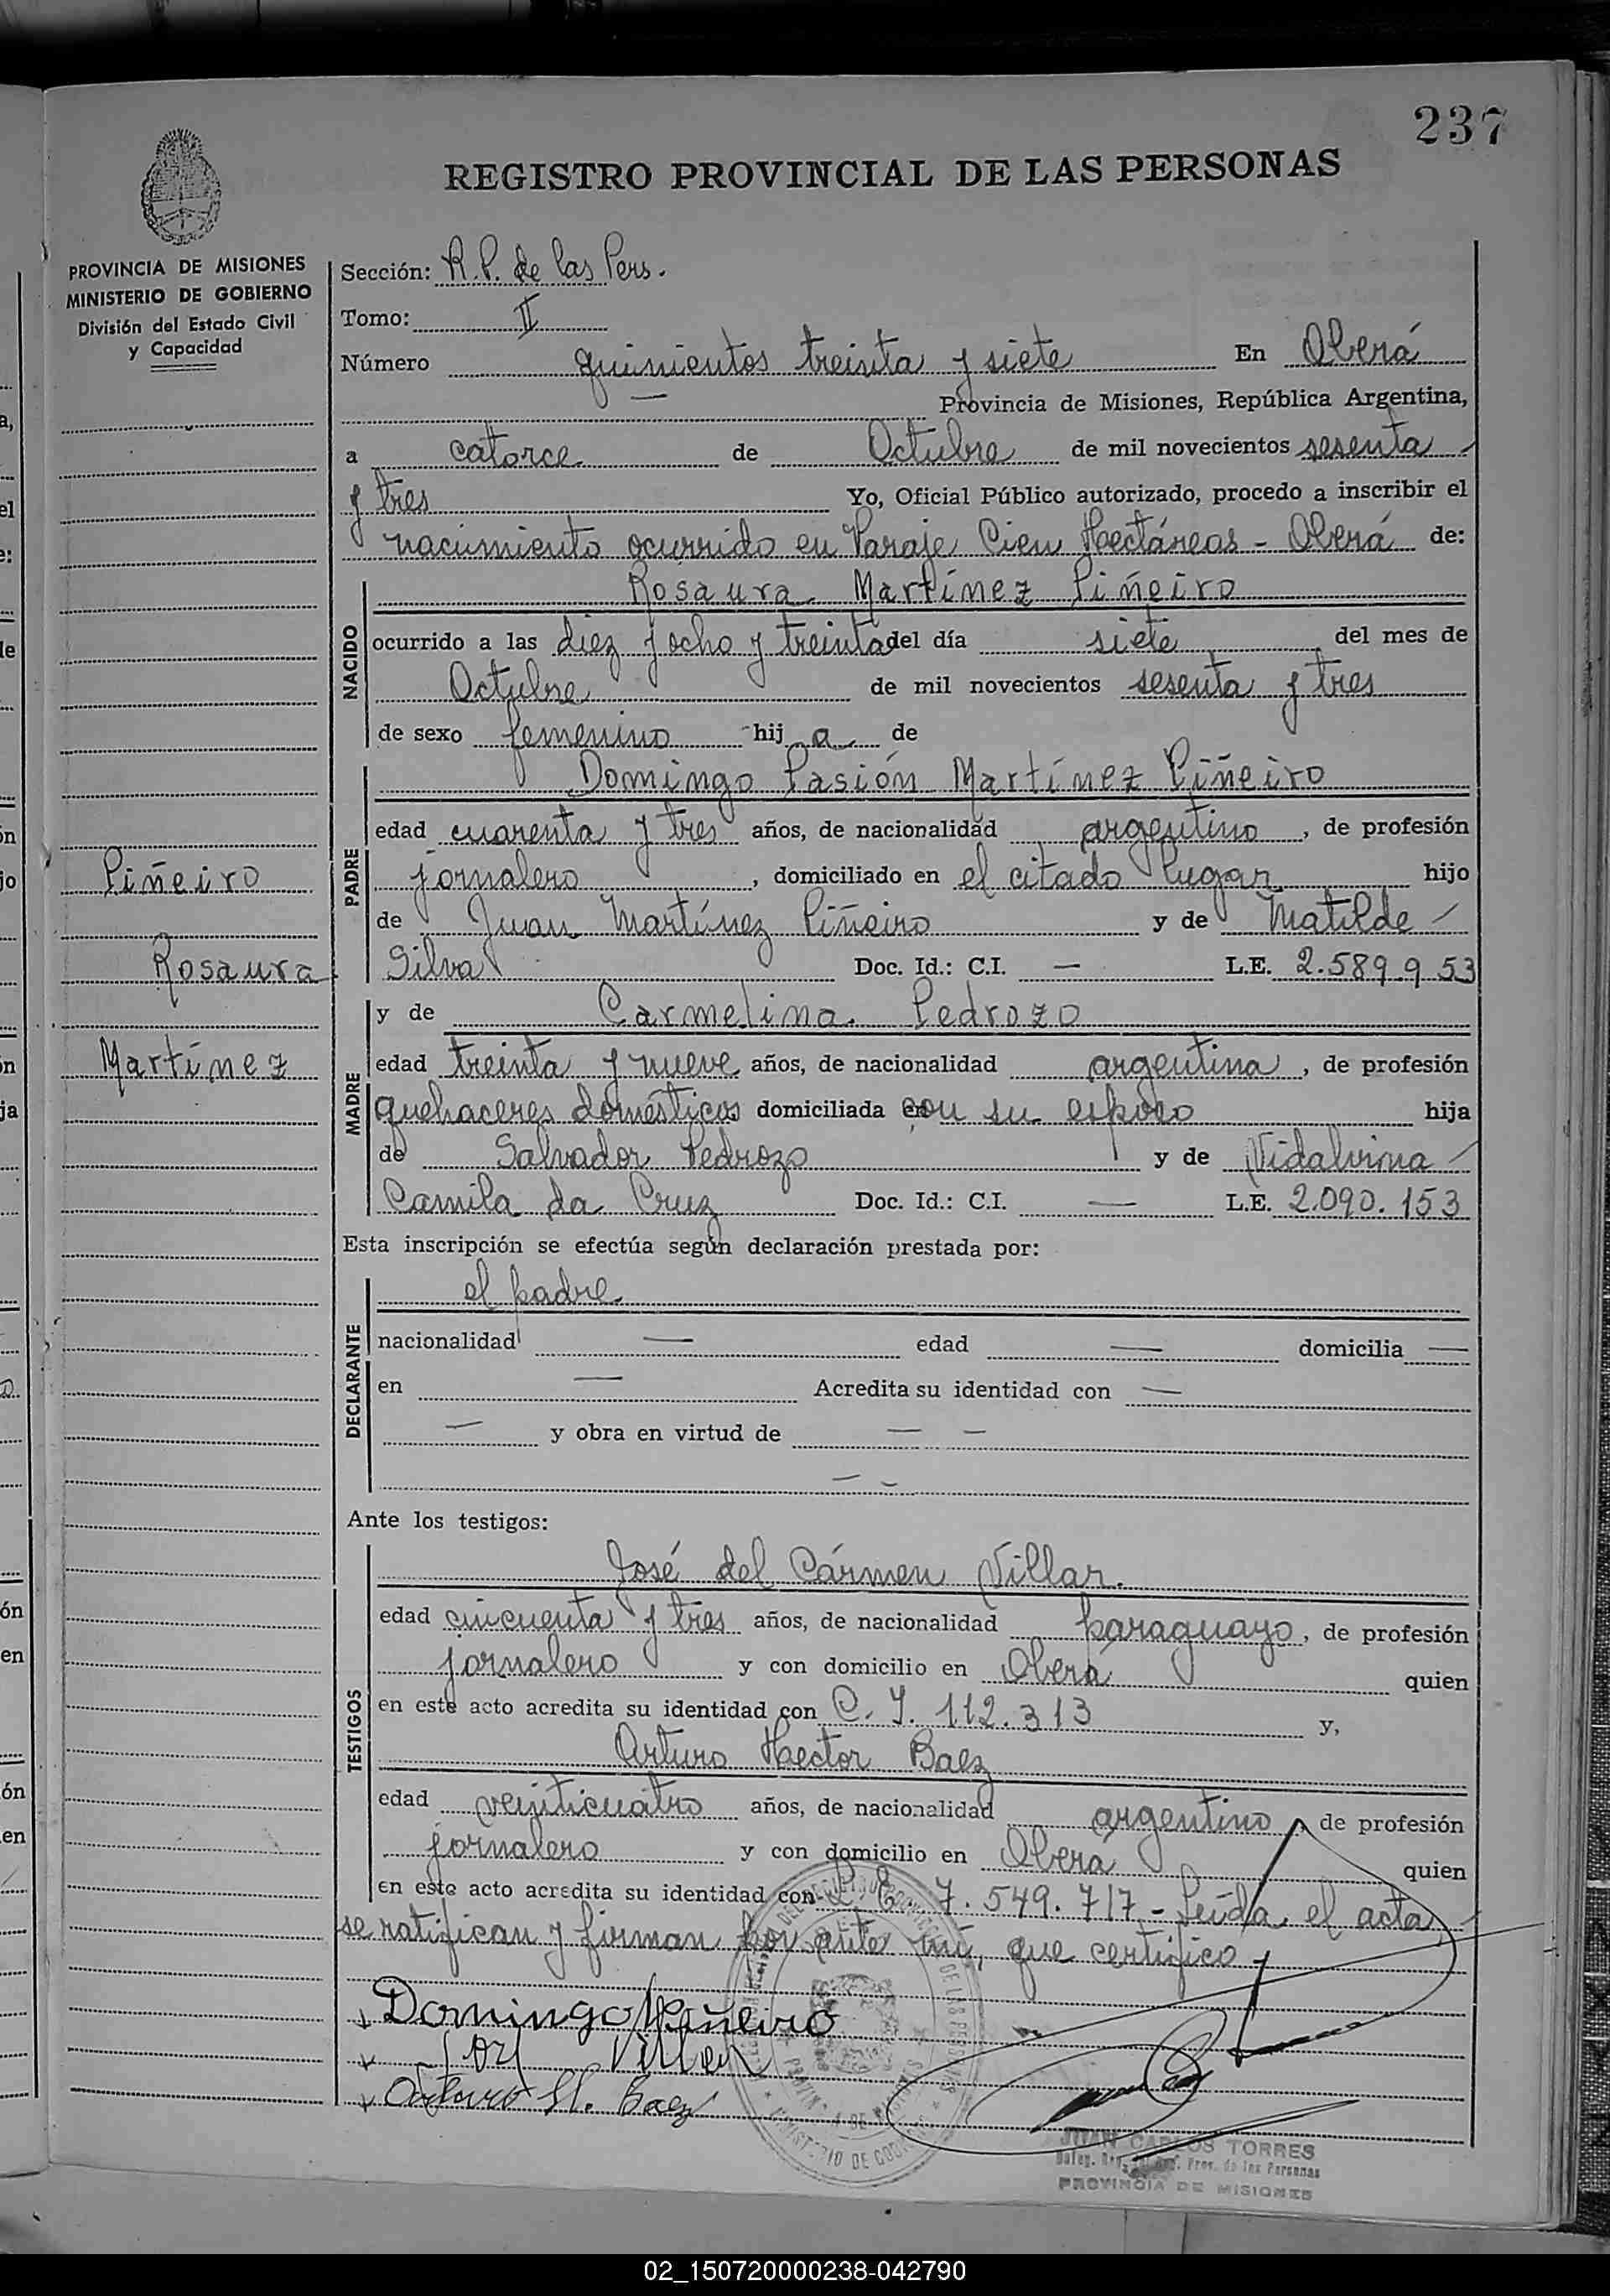 237
REGISTRO PROVINCIAL DE LAS PERSONAS
PROVINCIA DE MISIONES
MINISTERIO DE GOBIERNO
División del Estado Civil
y Capacidad
Piñeiro
Rosaura
Martínez
Sección: R.P. de las Pers.
Tomo: II
Número quinientos treinta y siete En Oberá
— Provincia de Misiones, República Argentina,
a catorce de Octubre de mil novecientos sesenta
y tres Yo, Oficial Público autorizado, procedo a inscribir el
nacimiento ocurrido en Paraje Cien Hectáreas - Oberá de:
NACIDO
Rosaura Martínez Piñeiro
ocurrido a las diez y ocho y treinta del día siete del mes de
Octubre de mil novecientos sesenta y tres
de sexo femenino hij a de
PADRE
Domingo Pasión Martínez Piñeiro
edad cuarenta y tres años, de nacionalidad argentino, de profesión
jornalero, domiciliado en el citado lugar hijo
de Juan Martínez Piñeiro y de Matilde
Silva Doc. Id.: C.I. — L.E. 2.589.953
MADRE
y de Carmelina Pedrozo
edad treinta y nueve años, de nacionalidad argentina, de profesión
quehaceres domésticos domiciliada en con su esposo hija
de Salvador Pedrozo y de Vidalvina
Camila da Cruz Doc. Id.: C.I. — L.E. 2.090.153
Esta inscripción se efectúa según declaración prestada por:
DECLARANTE
el padre
nacionalidad — edad — domicilia —
en — Acredita su identidad con —
— y obra en virtud de — —
— —
Ante los testigos:
TESTIGOS
José del Cármen Villar.
edad cincuenta y tres años, de nacionalidad paraguayo, de profesión
jornalero y con domicilio en Oberá quien
en este acto acredita su identidad con C.I. 112.313 y,
Arturo Hector Baez
edad veinticuatro años, de nacionalidad argentino, de profesión
jornalero y con domicilio en Oberá quien
en este acto acredita su identidad con L.E. 7.549.717 - Leída el acta,
se ratifican y firman por ante mí, que certifico.
Domingo Piñeiro
Villar
Arturo H. Baez
JUAN CARLOS TORRES
Prov. de las Personas
PROVINCIA DE MISIONES
02_150720000238-042790